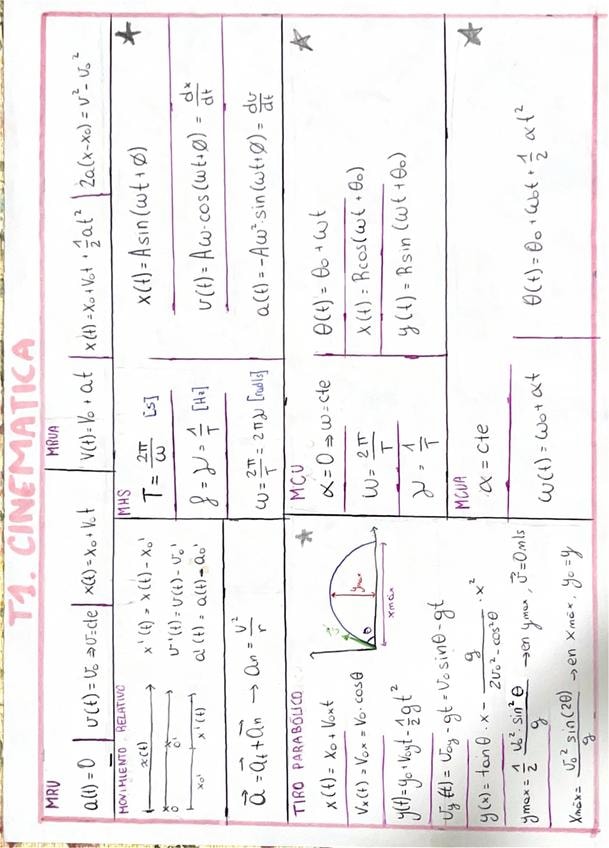 T1. CINEMATICA
MRU
a(t)=0
v(t) = v₀ ⇒ v=cte
x(t) = x₀ + v₀t
MRUA
v(t) = v₀ + at
x(t) = x₀ + v₀t + 1/2 at²
2a(x-x₀) = v² - v₀²
MOVIMIENTO RELATIVO
x(t)
x 0
x 0'
x₀'
x'(t)
x'(t) = x(t) - x₀'
v'(t) = v(t) - v₀'
a'(t) = a(t) - a₀'
a⃗ = a⃗t + a⃗n → an = v²/r
MHS
T = 2π/ω [s]
f = ν = 1/T [Hz]
ω = 2π/T = 2πν [rad/s]
x(t) = A sin(ωt+∅)
v(t) = Aω·cos(ωt+∅) = dx/dt
a(t) = -Aω²·sin(ωt+∅) = dv/dt
TIRO PARABÓLICO
x(t) = x₀ + v₀xt
vx(t) = v₀x = v₀·cosθ
y(t) = y₀ + v₀yt - 1/2 gt²
vy(t) = v₀y - gt = v₀ sinθ - gt
y(x) = tanθ·x - g/2v₀²-cos²θ · x²
ymax = 1/2 v₀²·sin²θ/g → en ymax, v⃗=0m/s
xmáx = v₀² sin(2θ)/g → en xmáx, y₀=y
θ
ymax
xmáx
MCU
α=0 ⇒ ω=cte
ω = 2π/T
ν = 1/T
θ(t) = θ₀ + ωt
x(t) = Rcos(ωt+θ₀)
y(t) = Rsin(ωt+θ₀)
MCUA
α = cte
ω(t) = ω₀ + αt
θ(t) = θ₀ + ω₀t + 1/2 αt²